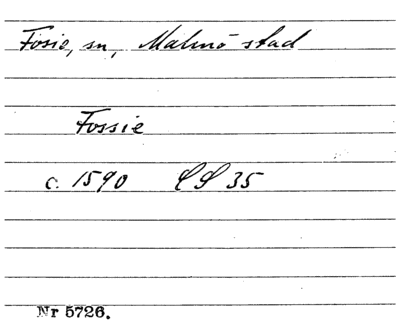 Fosie, sn, Malmö stad
Fossie
c. 1590 LS 35
Nr 5726.